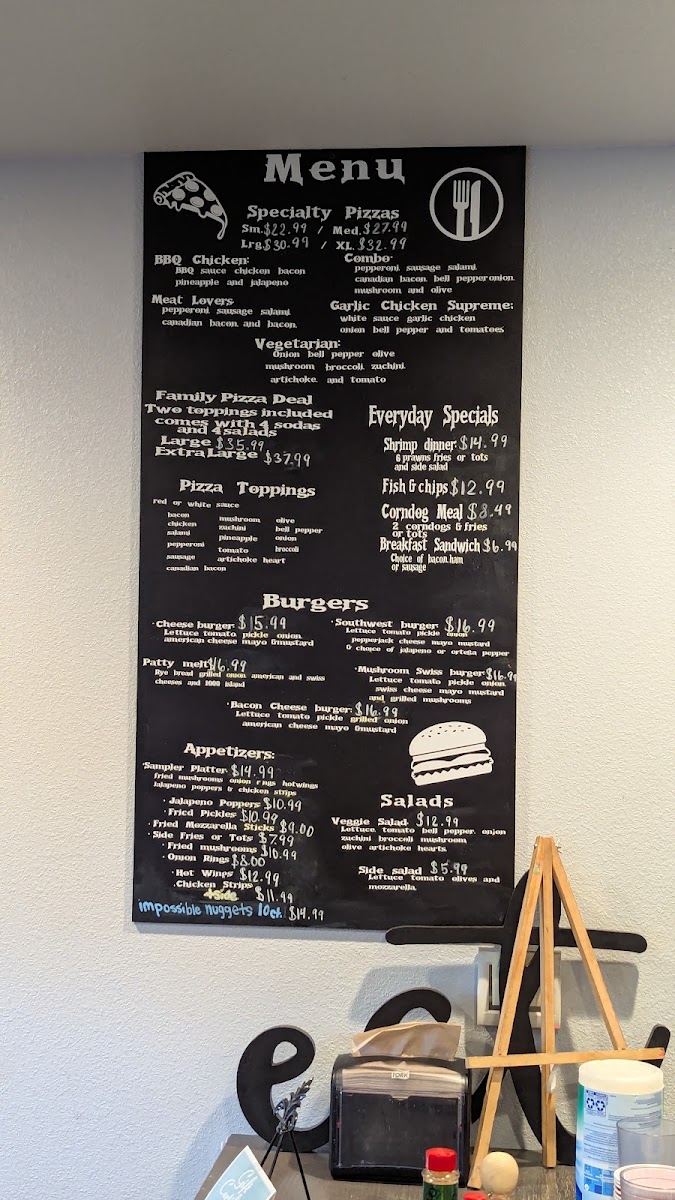 Menu
Specialty Pizzas
Sm. $22.99 / Med. $27.99
Lrg. $30.99 / XL. $32.99
BBQ Chicken:
BBQ sauce chicken bacon
pineapple and jalapeno
Combo:
pepperoni, sausage salami,
canadian bacon, bell pepper onion,
mushroom and olive
Meat Lovers
pepperoni, sausage salami
canadian bacon, and bacon,
Garlic Chicken Supreme:
white sauce garlic chicken
onion bell pepper and tomatoes
Vegetarian:
Onion bell pepper olive
mushroom broccoli, zuchini,
artichoke, and tomato
Family Pizza Deal
Two toppings included
comes with 4 sodas
and 4 salads
Large $35.99
Extra Large $37.99
Everyday Specials
Shrimp dinner: $14.99
6 prawns fries or tots
and side salad
Fish & chips $12.99
Corndog Meal $8.49
2 corndogs & fries
or tots
Breakfast Sandwich $6.99
Choice of bacon, ham
or sausage
Pizza Toppings
red or white sauce
bacon
chicken
salami
pepperoni
sausage
canadian bacon
mushroom
zuchini
pineapple
tomato
artichoke heart
olive
bell pepper
onion
broccoli
Burgers
· Cheese burger $15.99
Lettuce tomato pickle onion,
american cheese mayo &mustard
· Southwest burger $16.99
Lettuce tomato pickle onion
pepperjack cheese mayo mustard
& choice of jalapeno or ortega pepper
Patty melt $16.99
Rye bread grilled onion american and swiss
cheeses and 1000 island
· Mushroom Swiss burger $16.99
Lettuce tomato pickle onion
swiss cheese mayo mustard
and grilled mushrooms
· Bacon Cheese burger: $16.99
Lettuce tomato pickle grilled onion
american cheese mayo &mustard
Appetizers:
· Sampler Platter $14.99
fried mushrooms onion rings hotwings
jalapeno poppers & chicken strips
· Jalapeno Poppers $10.99
· Fried Pickles $10.99
· Fried Mozzarella Sticks $9.00
· Side Fries or Tots $7.99
· Fried mushrooms $10.99
· Onion Rings $8.00
· Hot Wings $12.99
· Chicken Strips
+side $11.99
impossible nuggets 10ct. $14.99
Salads
Veggie Salad $12.99
Lettuce tomato bell pepper, onion
zuchini broccoli mushroom
olive artichoke hearts
Side salad $5.99
Lettuce tomato olives and
mozzarella
eat
TORK